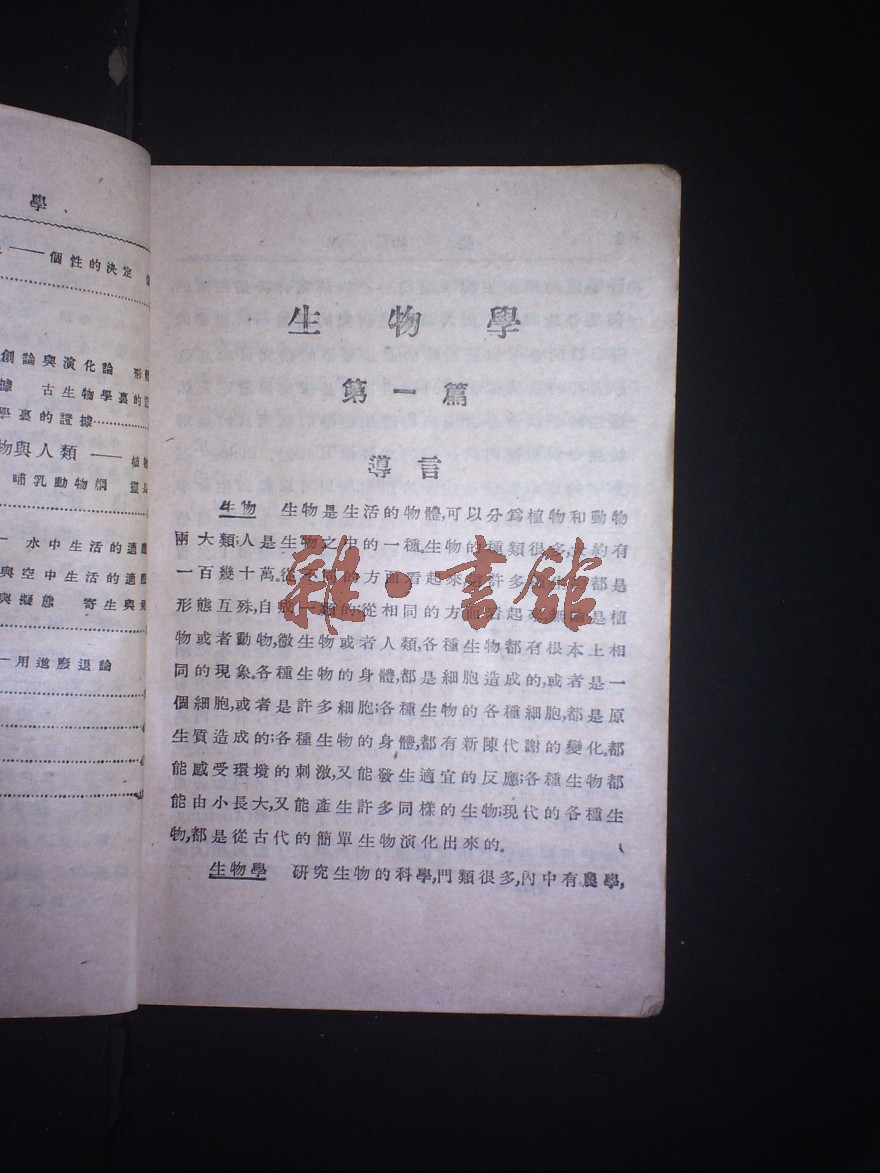 學
——個性的決定
創論與演化論 形
據 古生物學裏的
學裏的證據
物與人類——植
哺乳動物綱 靈
水中生活的適應
與空中生活的適應
與擬態 寄生與
用進廢退論
生物學
第一篇
導言
生物 生物是生活的物體,可以分爲植物和動物
兩大類;人是生物之中的一種.生物的種類很多,大約有
一百幾十萬。從不同的方面看起來,許多生物,都是
形態互殊,自成一類的;從相同的方面看起來,無論是植
物或者動物,微生物或者人類,各種生物都有根本上相
同的現象.各種生物的身體,都是細胞造成的,或者是一
個細胞,或者是許多細胞;各種生物的各種細胞,都是原
生質造成的;各種生物的身體,都有新陳代謝的變化。都
能感受環境的刺激,又能發生適宜的反應;各種生物都
能由小長大,又能產生許多同樣的生物;現代的各種生
物,都是從古代的簡單生物演化出來的。
生物學 研究生物的科學,門類很多,內中有農學,
雜·書館